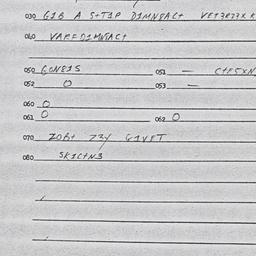 030 G1B A S+T1P D1MN8AC+ VET3R23X K
040 VARFD1MN8AC+
050 GON81S 051 — C+F5XN
052 0 053 —
060 0
061 0 062 0
070 ZOB+ 23Y G1VFT
080 SK1C+N3